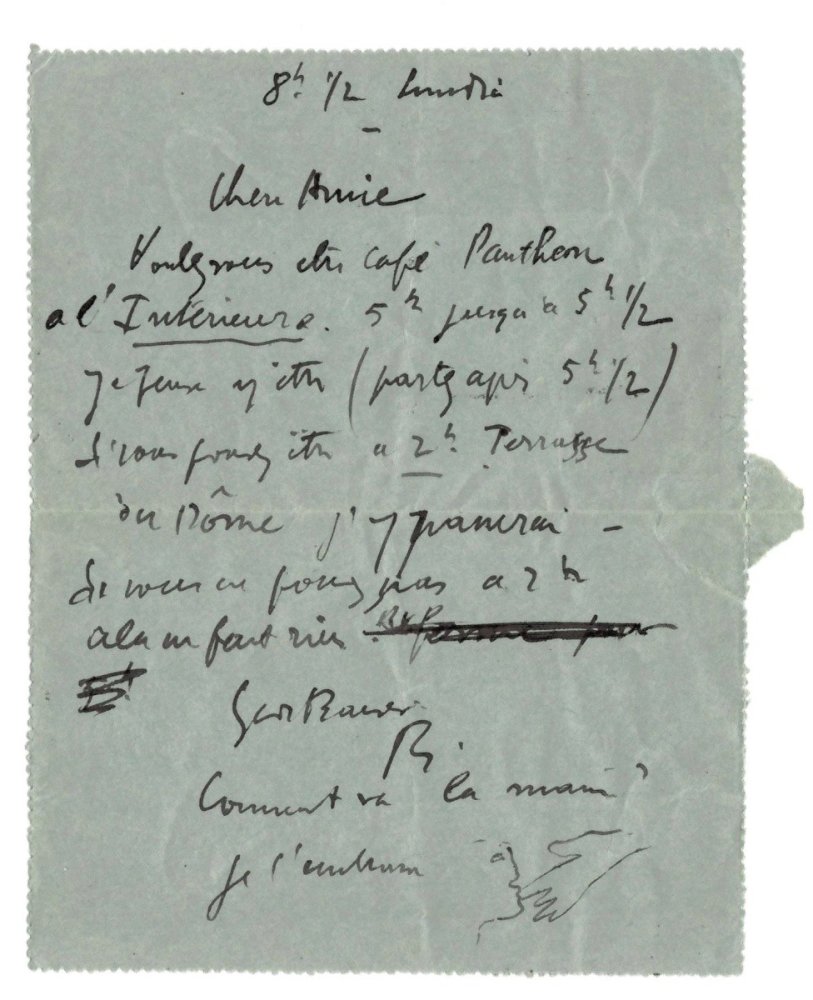 8h. 1/2 Lundi
Chere Amie
Voulez vous etre café Pantheon
a l'Intérieure. 5h jusqu'à 5h 1/2
je peux y etre (partez apres 5h 1/2)
Si vous pouvez etre a 2h. Terrasse
du Dôme j'y passerai –
Si vous ne pouvez pas a 2h
cela ne fait rien.
Comment va la main?
je l'embrasse